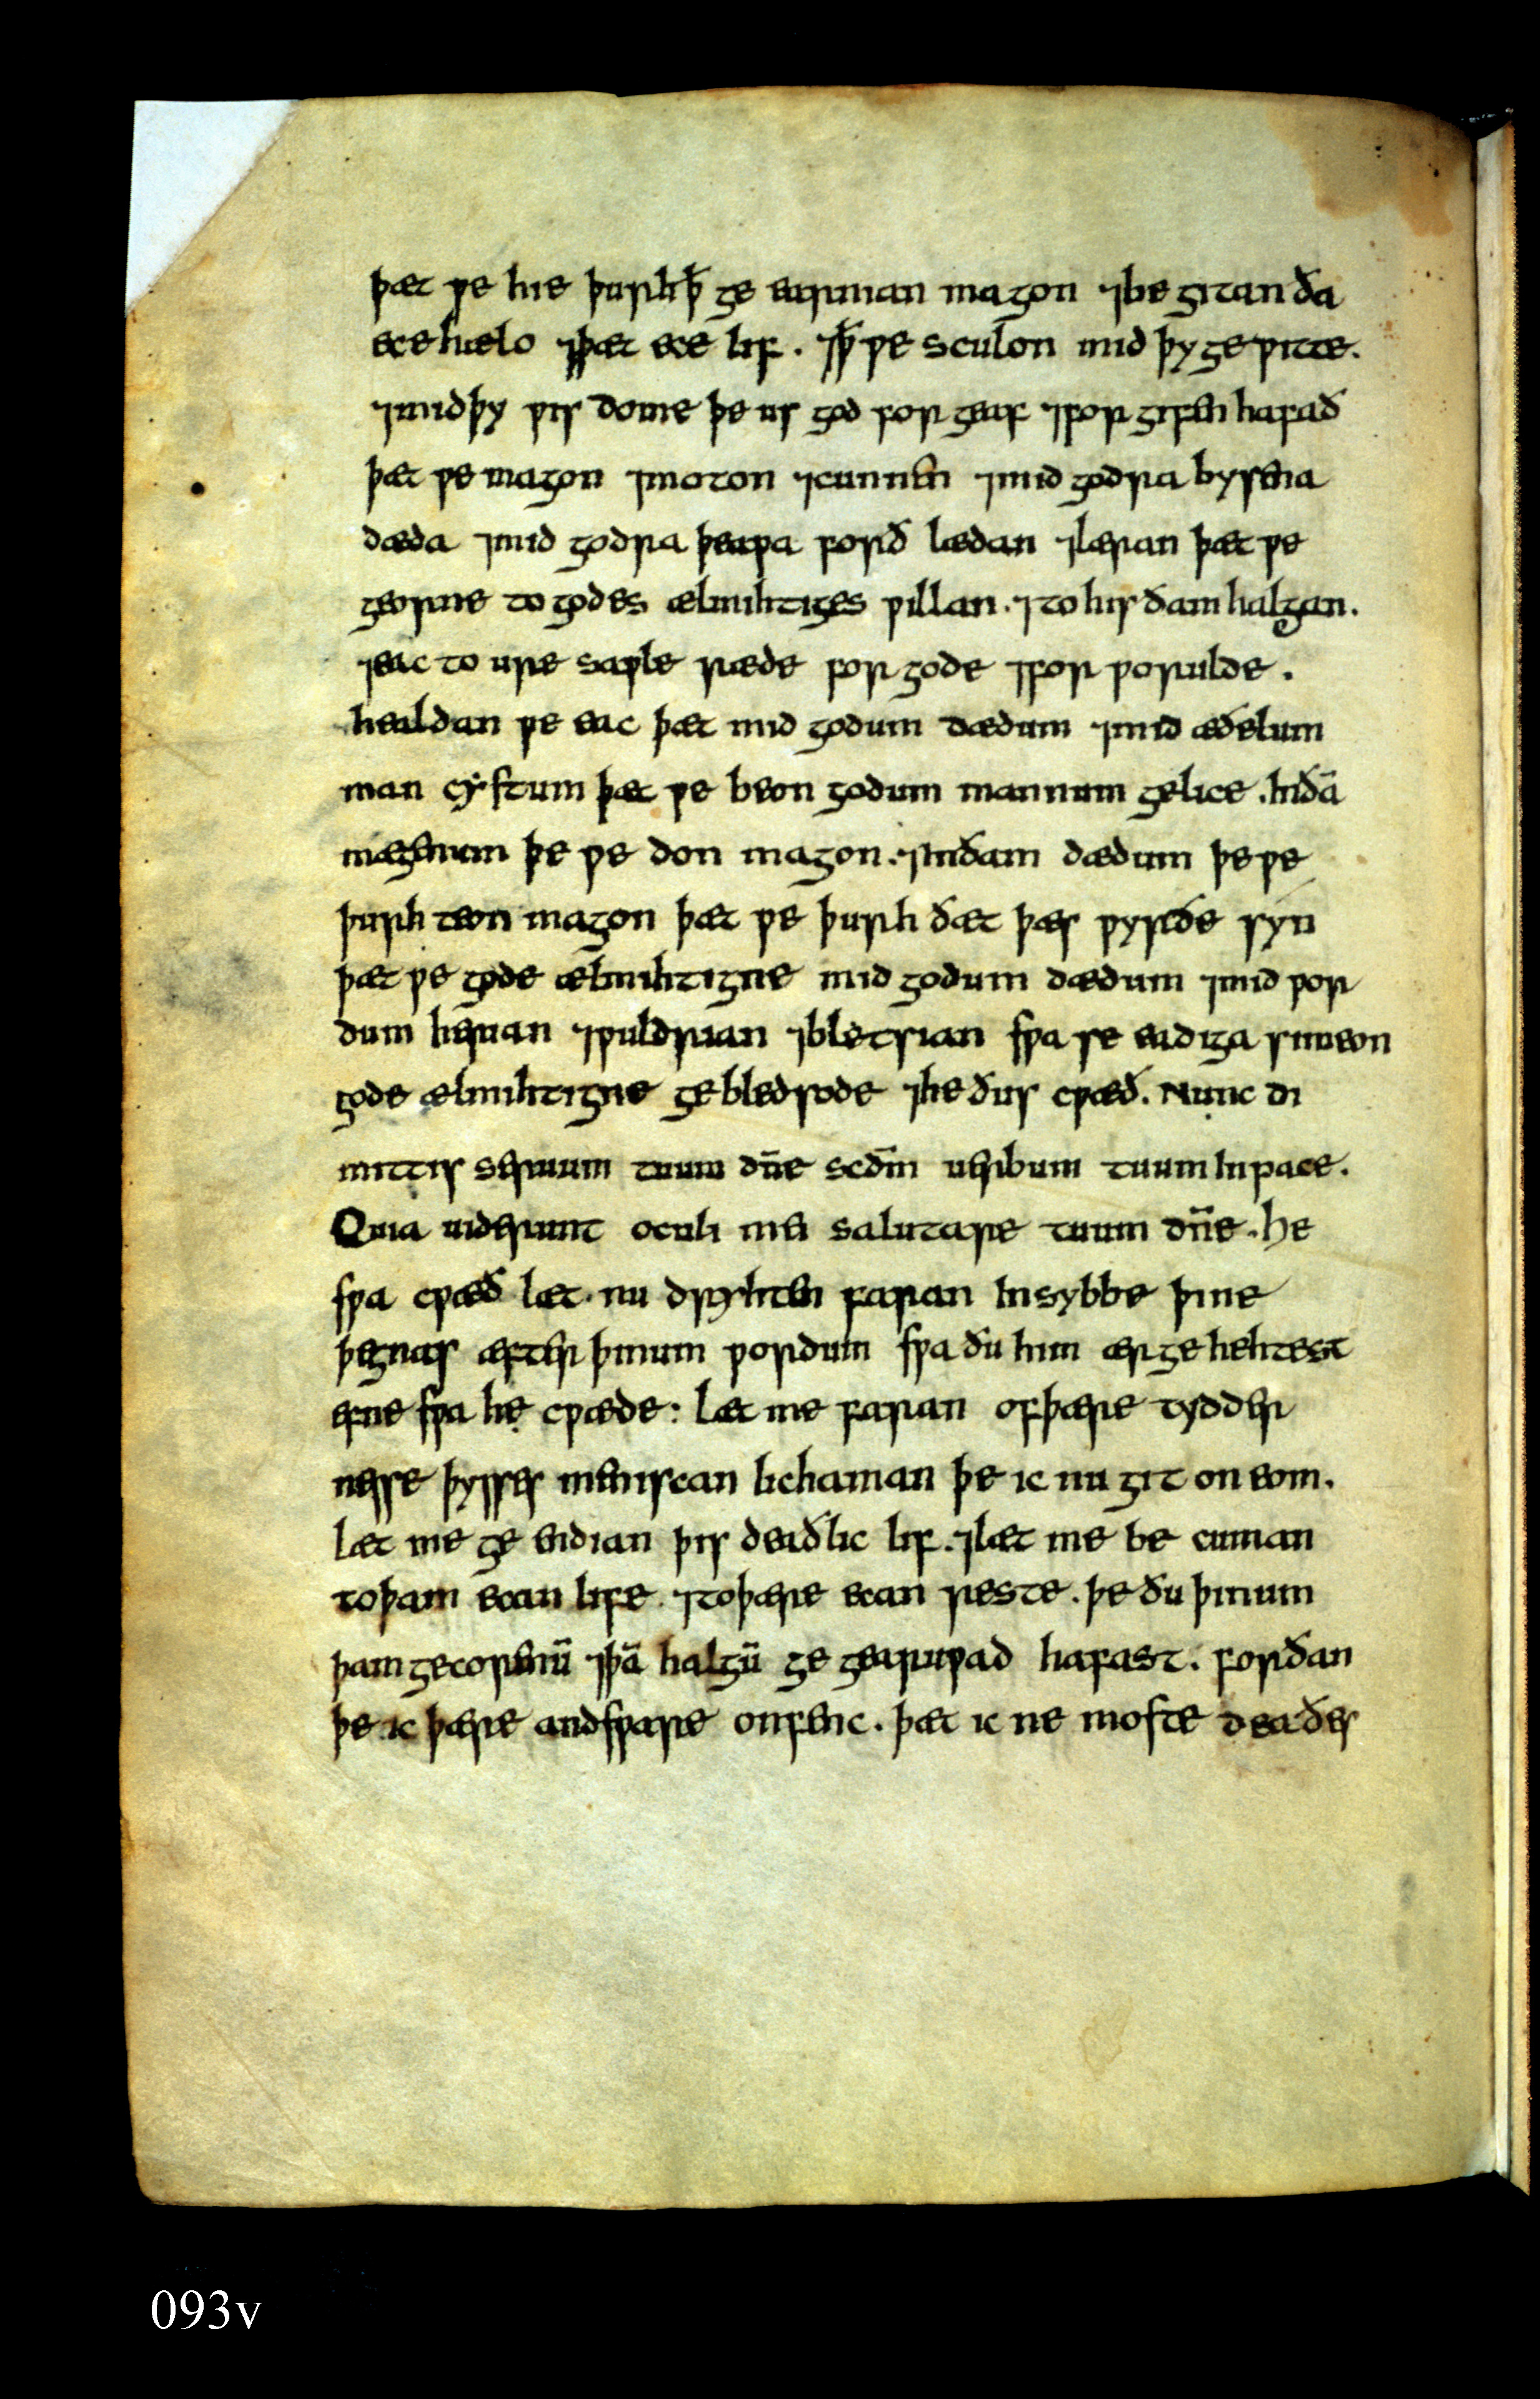 þæt ƿe hie þurh ꝥ ge earnian magon ⁊be gitan ða
ece hælo ⁊þæt ece lif . ⁊ꝥ ƿe sculon mid þy geƿitte.
⁊mid þy ƿis dome þe us god for geaf ⁊for gifen hafað
þæt ƿe magon ⁊moton ⁊cunnen ⁊mid godra bysena
dæda ⁊mid godra þeaƿa forð lædan ⁊læran þæt ƿe
georne to godes ælmihtiges ƿillan . ⁊to his ðam halgan.
⁊eac to ure saƿle ræde for gode ⁊for ƿorulde .
healdan ƿe eac þæt mid godum dædum ⁊mid æðelum
man cystum þæt ƿe beon godum mannum gelice . In ðā
mægenum þe ƿe don magon . ⁊In ðam dædum þe ƿe
þurh teon magon þæt ƿe þurh ðæt þæs ƿyrðe syn
þæt ƿe gode ælmihtigne mid godum dædum ⁊mid ƿor
dum herian ⁊ƿuldrian ⁊bletsian sƿa se eadiga simeon
gode ælmihtigne ge bledsode ⁊he ðus cƿæð . Nunc di
mittis seruum tuum dn̄e scdm̄ uerbum tuum In pace .
Quia uiderunt oculi mei salutare tuum dn̄e . he
sƿa cƿæð læt . nu dryhten faran In sybbe þine
þegnas æfter þinum ƿordum sƿa ðu him ær ge hehtest
efne sƿa he cƿæde : Læt me faran of þære tydder
nesse þysses meniscan lichaman þe ic nu git on eom .
Læt me ge endian þis deaðlic lif . ⁊læt me be cuman
to þam ecan life . ⁊to þære ecan reste . þe ðu þinum
þam gecorenū ⁊þā halgū ge gearuƿad hafast . forðan
þe ic þære andsƿare onfenc . þæt ic ne moste deaðes
093v